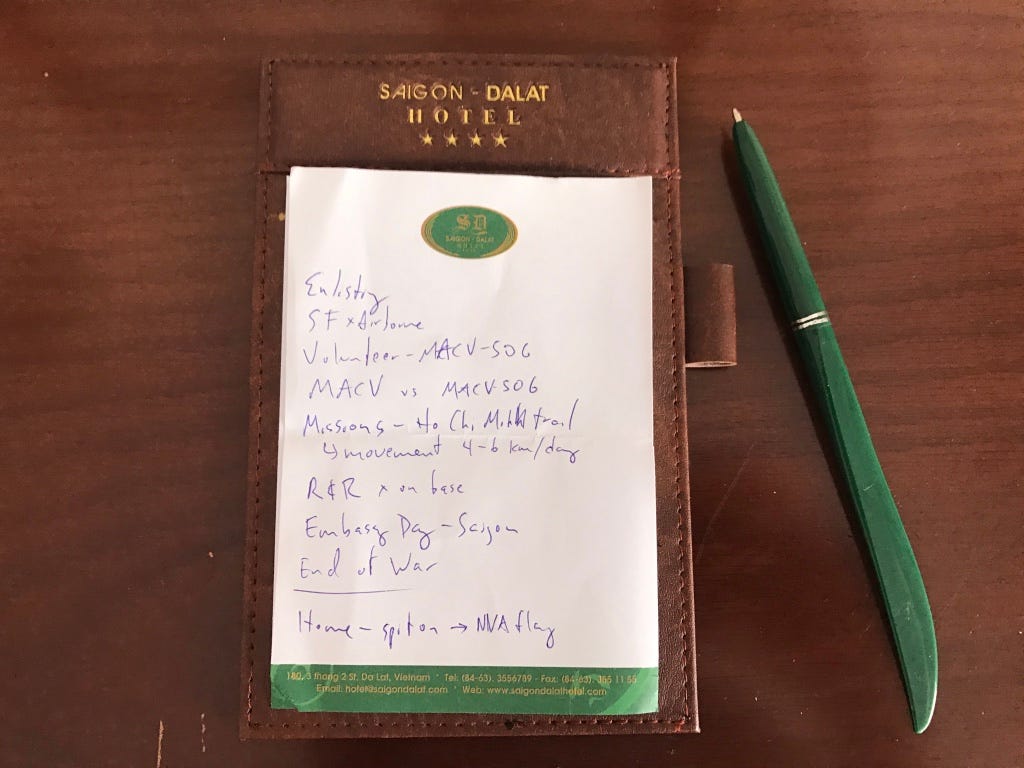 SAIGON - DALAT
HOTEL
SD
SAIGON - DALAT
HOTEL
Enlisting
SF x Airborne
Volunteer - MACV-SOG
MACV vs MACV-SOG
Missions - Ho Chi Minh trail
↳ movement 4-6 km/day
R&R x on base
Embassy Day - Saigon
End of War
Home - spit on → NVA flag
180, 3 thang 2 St. Da Lat, Vietnam * Tel: (84-63). 3556789 - Fax: (84-63). 355 11 55
Email: hotel@saigondalat.com * Web: www.saigondalathotel.com